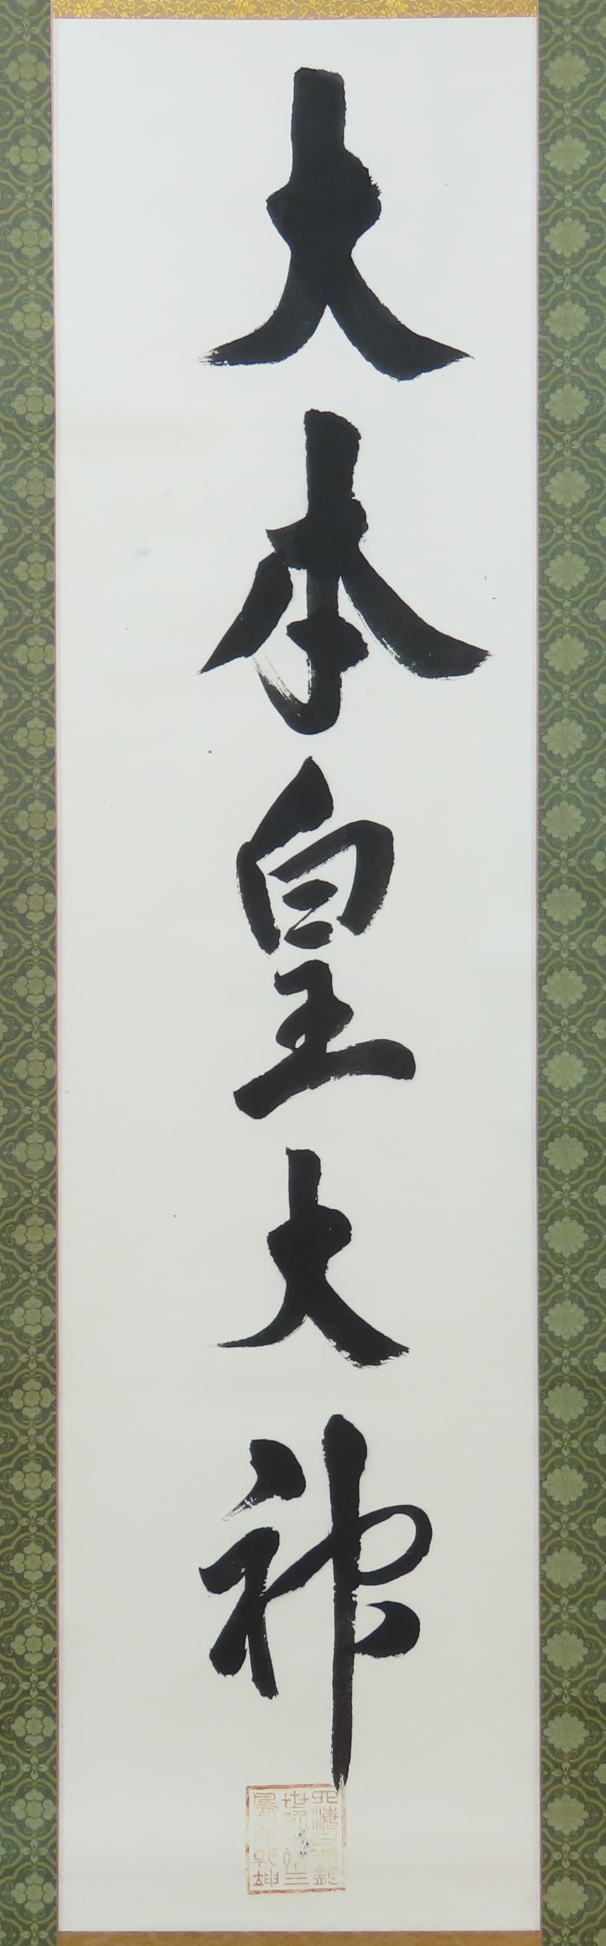 大本皇大神